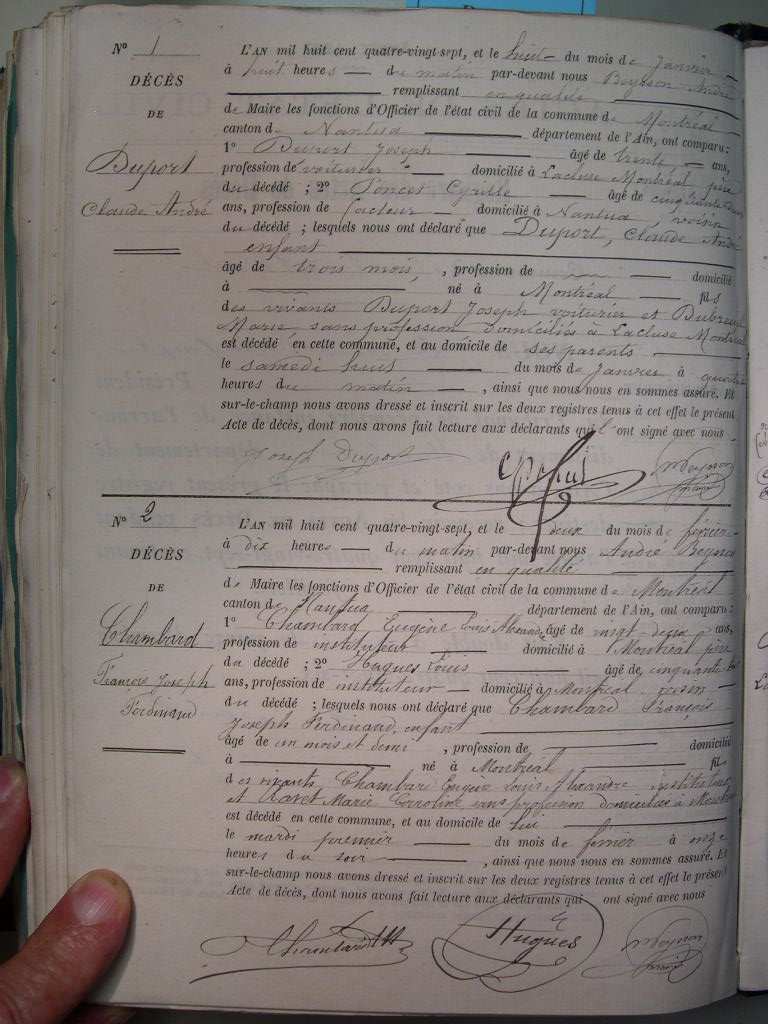 N° 1
DÉCÈS
DE
Duport
Claude André
L'AN mil huit cent quatre-vingt-sept, et le huit du mois de Janvier
à huit heures du matin par-devant nous Beynon André
remplissant en qualité
de Maire les fonctions d'Officier de l'état civil de la commune de Montréal
canton de Nantua département de l'Ain, ont comparu :
1° Duport Joseph âgé de trente ans,
profession de voiturier domicilié à Lacluse Montréal père
du décédé ; 2° Poncet Cyrille âgé de cinquante
ans, profession de facteur domicilié à Nantua, voisin
du décédé ; lesquels nous ont déclaré que Duport, Claude André
enfant
âgé de trois mois, , profession de domicilié
à né à Montréal fils
des vivants Duport Joseph voiturier et
Marie sans profession domiciliés à Lacluse Montréal
est décédé en cette commune, et au domicile de ses parents
le samedi huit du mois de Janvier à quatre
heures du matin , ainsi que nous nous en sommes assuré. Et
sur-le-champ nous avons dressé et inscrit sur les deux registres tenus à cet effet le présent
Acte de décès, dont nous avons fait lecture aux déclarants qui ont signé avec nous
Joseph Duport
N° 2
DÉCÈS
DE
Chambard
François Joseph
Ferdinand
L'AN mil huit cent quatre-vingt-sept, et le deux du mois de février
à dix heures du matin par-devant nous André Beynon
remplissant en qualité
de Maire les fonctions d'Officier de l'état civil de la commune de Montréal
canton de Nantua département de l'Ain, ont comparu :
1° Chambard Eugène Louis Alexandre âgé de vingt deux ans,
profession de instituteur domicilié à Montréal père
du décédé ; 2° Hugues Louis âgé de cinquante
ans, profession de instituteur domicilié à Montréal voisin
du décédé ; lesquels nous ont déclaré que Chambard François
Joseph Ferdinand, enfant
âgé de un mois et demi , profession de domicilié
à né à Montréal fils
des vivants Chambard Eugène Louis Alexandre instituteur
et Marie Caroline sans profession domiciliés à Montréal
est décédé en cette commune, et au domicile de lui
le mardi premier du mois de février à onze
heures du soir , ainsi que nous nous en sommes assuré. Et
sur-le-champ nous avons dressé et inscrit sur les deux registres tenus à cet effet le présent
Acte de décès, dont nous avons fait lecture aux déclarants qui ont signé avec nous
Chambard Hugues Beynon